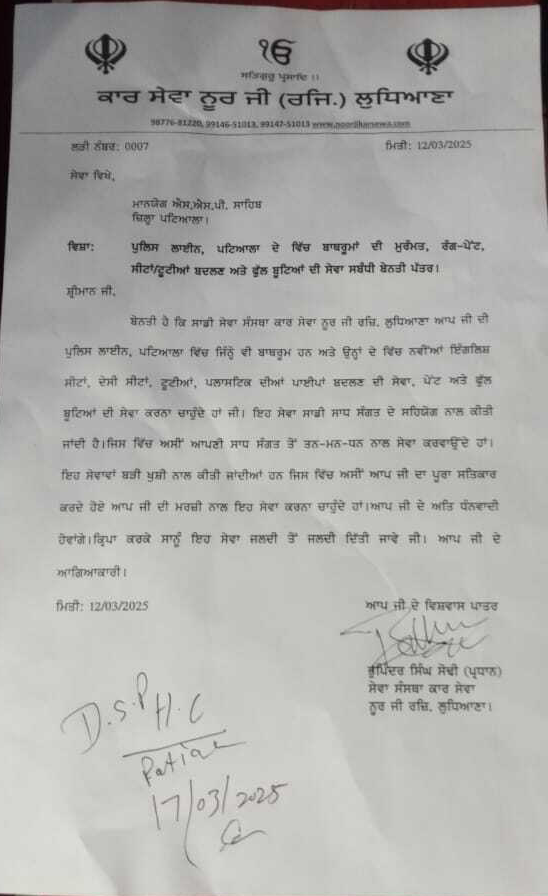 ੴ
ਸਤਿਗੁਰੂ ਪ੍ਰਸਾਦਿ ।।
ਕਾਰ ਸੇਵਾ ਨੂਰ ਜੀ (ਰਜਿ.) ਲੁਧਿਆਣਾ
98776-81220, 99146-51013, 99147-51013 www.noorjikarsewa.com
ਲੜੀ ਨੰਬਰ: 0007 ਮਿਤੀ: 12/03/2025
ਸੇਵਾ ਵਿਖੇ,
ਮਾਨਯੋਗ ਐਸ.ਐਸ.ਪੀ. ਸਾਹਿਬ
ਜ਼ਿਲ੍ਹਾ ਪਟਿਆਲਾ।
ਵਿਸ਼ਾ: ਪੁਲਿਸ ਲਾਈਨ, ਪਟਿਆਲਾ ਦੇ ਵਿੱਚ ਬਾਥਰੂਮਾਂ ਦੀ ਮੁਰੰਮਤ, ਰੰਗ-ਪੇਂਟ,
ਸੀਟਾਂ/ਟੂਟੀਆਂ ਬਦਲਣ ਅਤੇ ਫੁੱਲ ਬੂਟਿਆਂ ਦੀ ਸੇਵਾ ਸਬੰਧੀ ਬੇਨਤੀ ਪੱਤਰ।
ਸ਼੍ਰੀਮਾਨ ਜੀ,
ਬੇਨਤੀ ਹੈ ਕਿ ਸਾਡੀ ਸੇਵਾ ਸੰਸਥਾ ਕਾਰ ਸੇਵਾ ਨੂਰ ਜੀ ਰਜਿ. ਲੁਧਿਆਣਾ ਆਪ ਜੀ ਦੀ
ਪੁਲਿਸ ਲਾਈਨ, ਪਟਿਆਲਾ ਵਿੱਚ ਜਿੰਨ੍ਹੇ ਵੀ ਬਾਥਰੂਮ ਹਨ ਅਤੇ ਉਨ੍ਹਾਂ ਦੇ ਵਿੱਚ ਨਵੀਂਆਂ ਇੰਗਲਿਸ਼
ਸੀਟਾਂ, ਦੇਸੀ ਸੀਟਾਂ, ਟੂਟੀਆਂ, ਪਲਾਸਟਿਕ ਦੀਆਂ ਪਾਈਪਾਂ ਬਦਲਣ ਦੀ ਸੇਵਾ, ਪੇਂਟ ਅਤੇ ਫੁੱਲ
ਬੂਟਿਆਂ ਦੀ ਸੇਵਾ ਕਰਨਾ ਚਾਹੁੰਦੇ ਹਾਂ ਜੀ। ਇਹ ਸੇਵਾ ਸਾਡੀ ਸਾਧ ਸੰਗਤ ਦੇ ਸਹਿਯੋਗ ਨਾਲ ਕੀਤੀ
ਜਾਂਦੀ ਹੈ।ਜਿਸ ਵਿੱਚ ਅਸੀਂ ਆਪਣੀ ਸਾਧ ਸੰਗਤ ਤੋਂ ਤਨ-ਮਨ-ਧਨ ਨਾਲ ਸੇਵਾ ਕਰਵਾਉਂਦੇ ਹਾਂ।
ਇਹ ਸੇਵਾਵਾਂ ਬੜੀ ਖੁਸ਼ੀ ਨਾਲ ਕੀਤੀ ਜਾਂਦੀਆਂ ਹਨ ਜਿਸ ਵਿੱਚ ਅਸੀਂ ਆਪ ਜੀ ਦਾ ਪੂਰਾ ਸਤਿਕਾਰ
ਕਰਦੇ ਹੋਏ ਆਪ ਜੀ ਦੀ ਮਰਜ਼ੀ ਨਾਲ ਇਹ ਸੇਵਾ ਕਰਨਾ ਚਾਹੁੰਦੇ ਹਾਂ।ਆਪ ਜੀ ਦੇ ਅਤਿ ਧੰਨਵਾਦੀ
ਹੋਵਾਂਗੇ।ਕ੍ਰਿਪਾ ਕਰਕੇ ਸਾਨੂੰ ਇਹ ਸੇਵਾ ਜਲਦੀ ਤੋਂ ਜਲਦੀ ਦਿੱਤੀ ਜਾਵੇ ਜੀ। ਆਪ ਜੀ ਦੇ
ਆਗਿਆਕਾਰੀ।
ਮਿਤੀ: 12/03/2025 ਆਪ ਜੀ ਦੇ ਵਿਸ਼ਵਾਸ ਪਾਤਰ
ਭੁਪਿੰਦਰ ਸਿੰਘ ਸੋਢੀ (ਪ੍ਰਧਾਨ)
ਸੇਵਾ ਸੰਸਥਾ ਕਾਰ ਸੇਵਾ
ਨੂਰ ਜੀ ਰਜਿ. ਲੁਧਿਆਣਾ।
D.S.P H.C
17/03/2025